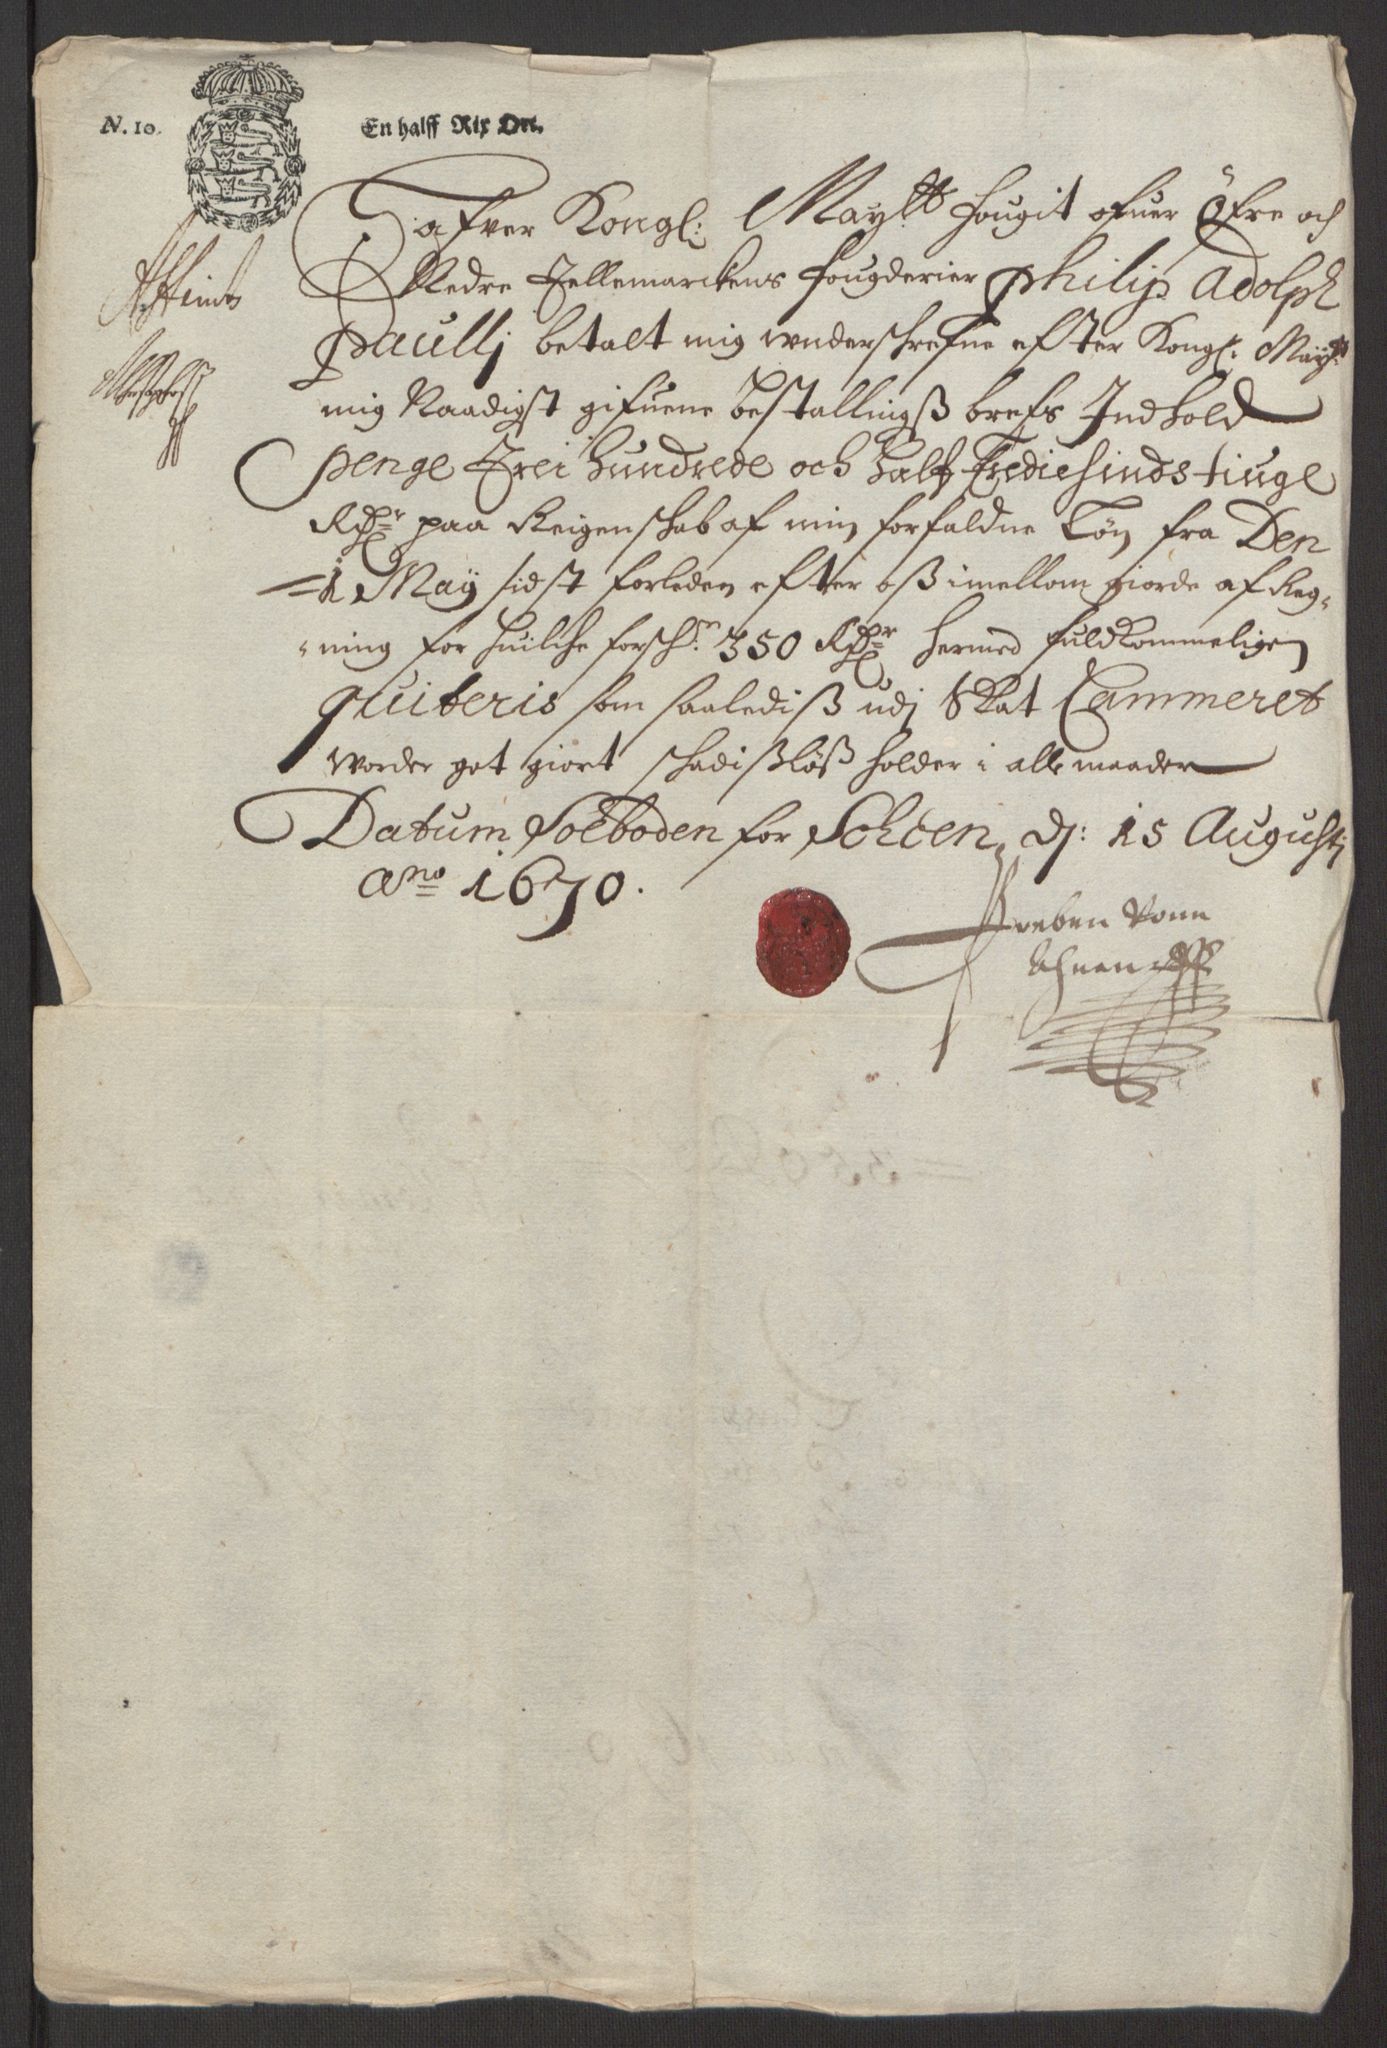 N. 10. En halff Rix Ort.
Hafver Kongl: Maytt fougit ofuer Öfre och
Nedre Tellemarckens fougderier Philip Adolph
Paullj betalt mig underschrefne efter Kongl: Maytt
mig Naadigst gifuene bestallingß brefs Indhold
Penge Trei hundrede och half Trediesinds tiuge
Rdr paa Reigenschab af min forfaldne Løn fra Den
1 May sidst forleden efter oß imellom giorde afReg-
-ning for huilche forschne 350 Rdr hermed fuldkommeligen
quiteris som saalediß udj Skat Cammeret
worder got giort schadißløß holder i alle maader
Datum Soeboden for Schien, dj: 15 Augustj
Ano 1670.
Preben Vonn
Ahnen